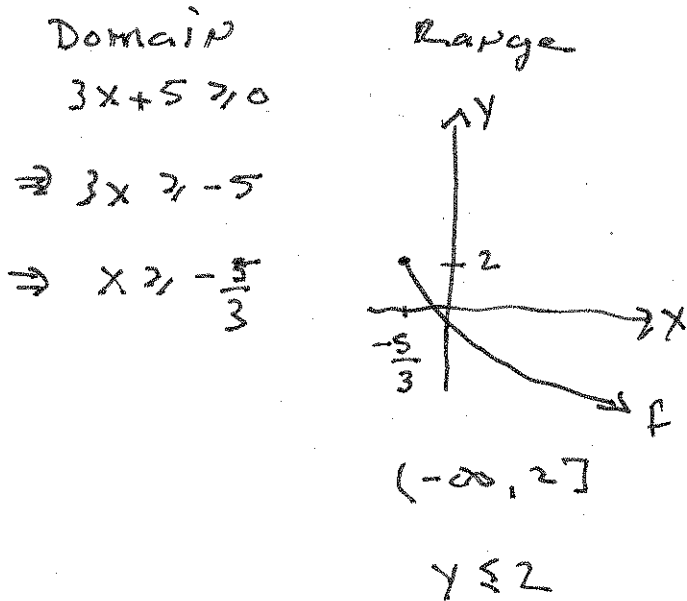 Domain
3x + 5 ≥ 0
⇒ 3x ≥ -5
⇒ x ≥ -5/3
Range
y
2
x
-5/3
f
(-∞, 2]
y ≤ 2